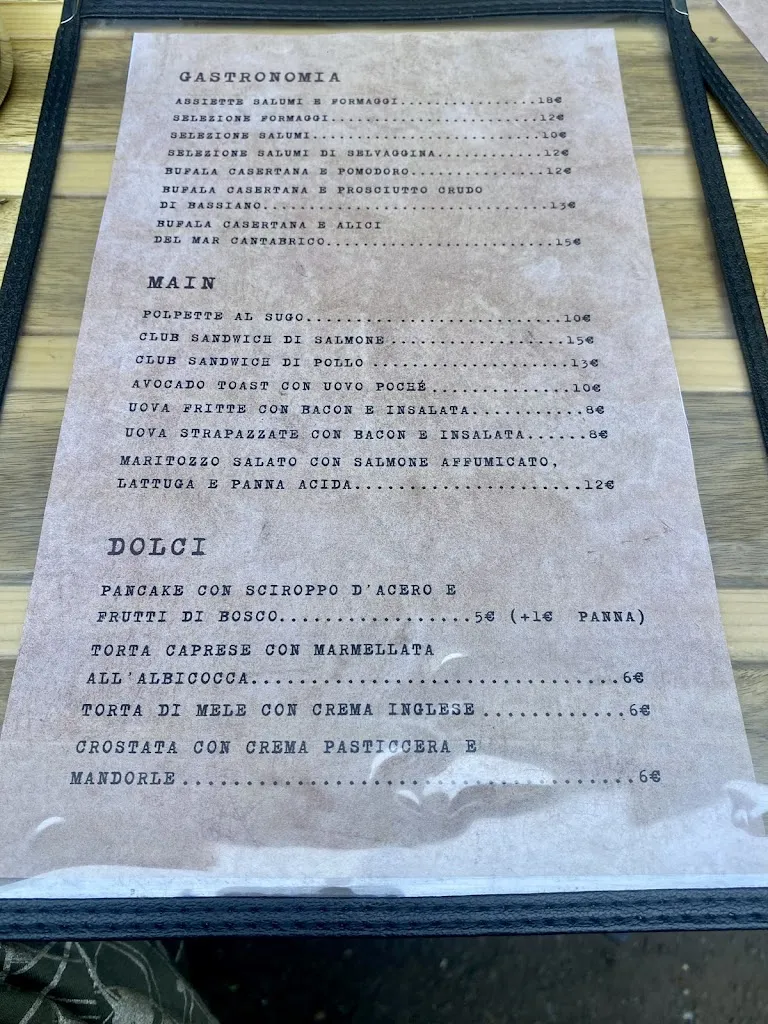 GASTRONOMIA
ASSIETTE SALUMI E FORMAGGI................18€
SELEZIONE FORMAGGI........................12€
SELEZIONE SALUMI..........................10€
SELEZIONE SALUMI DI SELVAGGINA............12€
BUFALA CASERTANA E POMODORO...............12€
BUFALA CASERTANA E PROSCIUTTO CRUDO
DI BASSIANO...............................13€
BUFALA CASERTANA E ALICI
DEL MAR CANTABRICO........................15€
MAIN
POLPETTE AL SUGO..........................10€
CLUB SANDWICH DI SALMONE..................15€
CLUB SANDWICH DI POLLO ...................13€
AVOCADO TOAST CON UOVO POCHÉ..............10€
UOVA FRITTE CON BACON E INSALATA...........8€
UOVA STRAPAZZATE CON BACON E INSALATA......8€
MARITOZZO SALATO CON SALMONE AFFUMICATO,
LATTUGA E PANNA ACIDA.....................12€
DOLCI
PANCAKE CON SCIROPPO D'ACERO E
FRUTTI DI BOSCO.................5€ (+1€ PANNA)
TORTA CAPRESE CON MARMELLATA
ALL'ALBICOCCA................................6€
TORTA DI MELE CON CREMA INGLESE............6€
CROSTATA CON CREMA PASTICCERA E
MANDORLE...................................6€